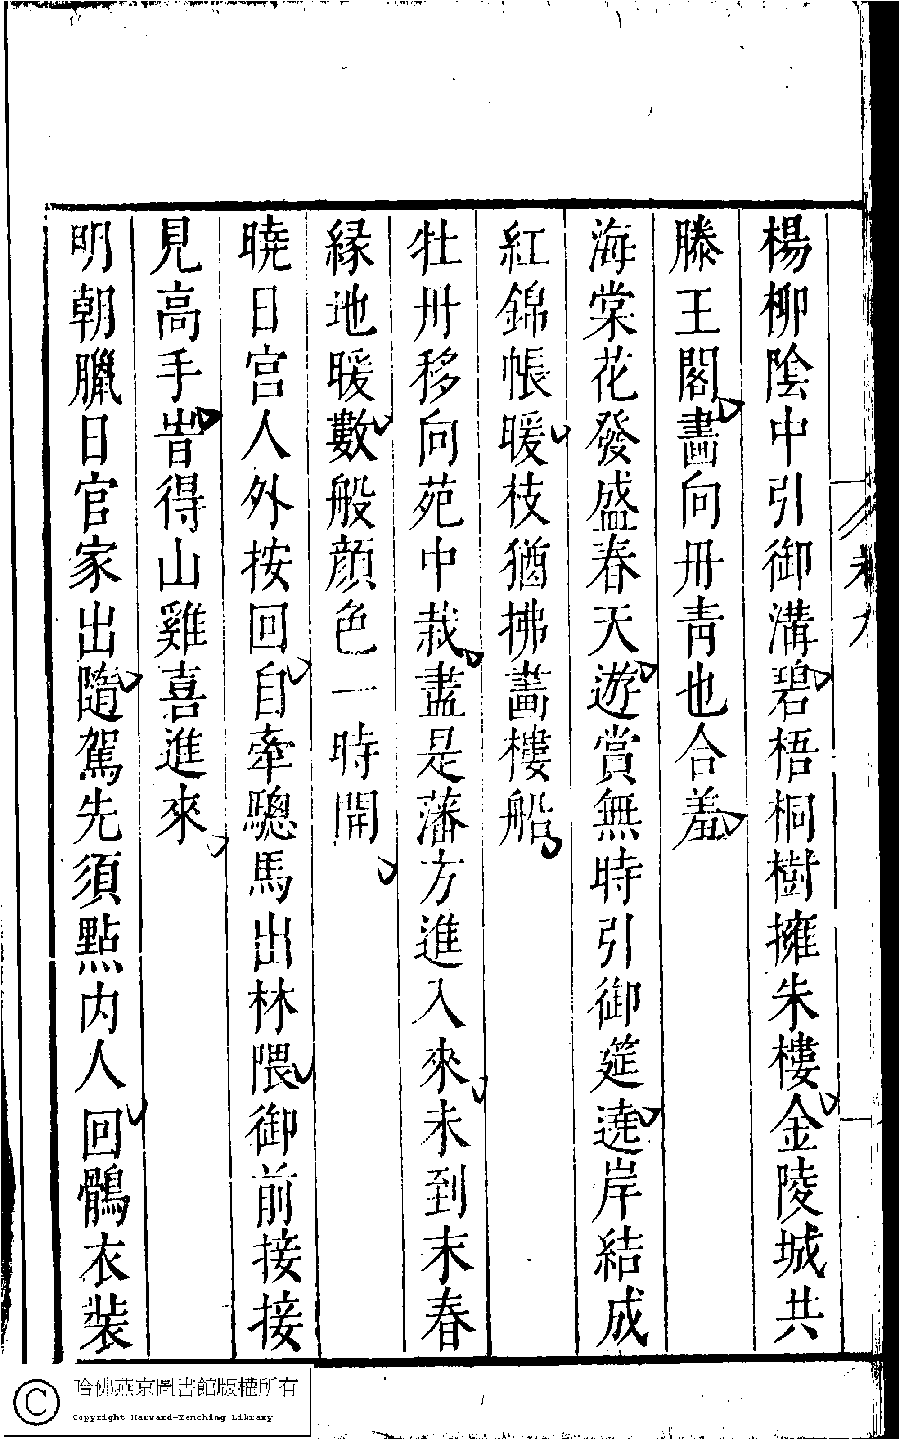 楊柳陰中引御溝碧梧桐樹擁朱樓金陵城共
滕王閣畵向丹青也合羞
海棠花發盛春天遊賞無時引御筵遶岸結成
紅錦帳暖枝猶拂畵樓船
牡丹移向苑中栽盡是藩方進入來未到末春
緑地暖數般顔色一時開
曉日宮人外按回自牽驄馬出林隈御前接接
見高手㫮得山雞喜進來
明朝臘日官家出隨駕先須點内人回鶻衣裝
卷
哈佛燕京圖書館版權所有
Copyright Harvard-Yenching Library